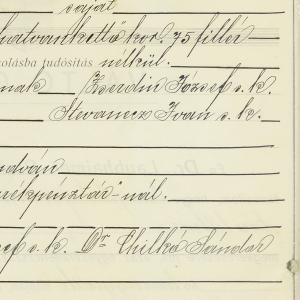 saját
hatvankettő kor. 75 fillér
zolásba tudósitás nélkül.
nak Zserdin József s.k.
Stevanecz Ivan s.k.
ndván
rékpénztár"-nál.
ef s.k. Dr Chilkó Sándor